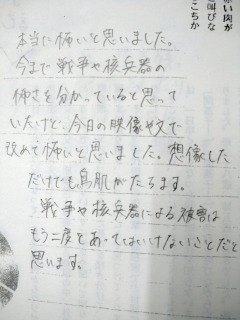 赤い肉が
叫びな
こちか
本当に怖いと思いました。
今まで戦争や核兵器の
怖さを分かっていると思って
いたけど、今日の映像や文で
改めて怖いと思いました。想像した
だけでも鳥肌がたちます。
戦争や核兵器による被害は
もう二度とあってはいけないことだと
思います。